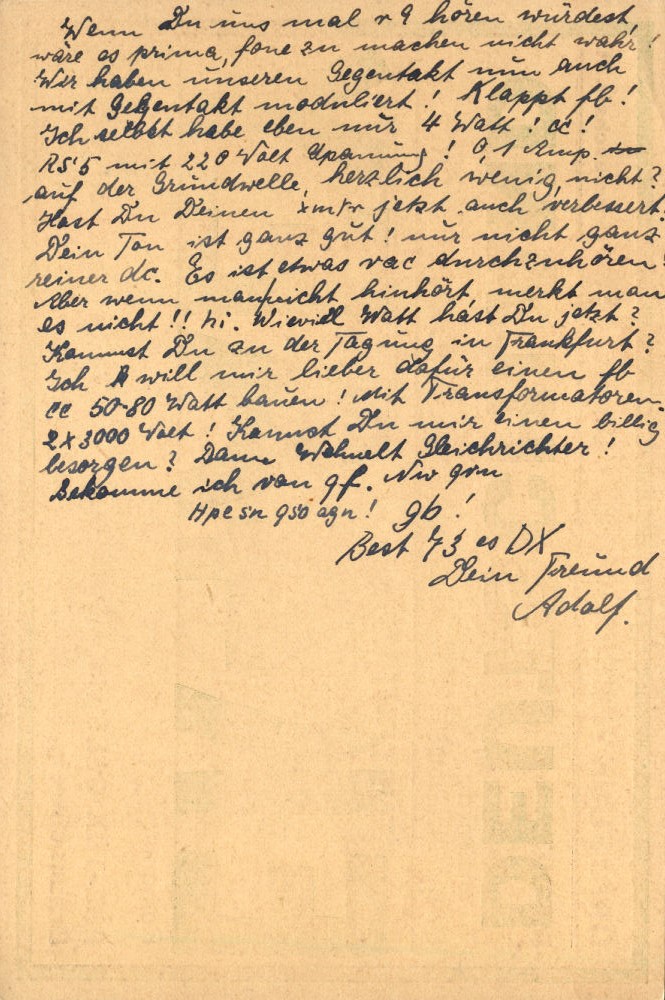 Wenn Du uns mal r 9 hören würdest,
wäre es prima, fone zu machen nicht wahr!
Wir haben unseren Gegentakt nun auch
mit Gegentakt moduliert! Klappt fb!
Ich selbst habe eben nur 4 Watt! cc!
RS'5 mit 220 Volt Spannung! 0,1 Amp.
auf der Grundwelle, herzlich wenig, nicht?
Hast Du Deinen xmtr jetzt auch verbessert.
Dein Ton ist ganz gut! nur nicht ganz
reiner dc. Es ist etwas rac durchzuhören!
Aber wenn man nicht hinhört, merkt man
es nicht!! hi. Wieviell Watt hast Du jetzt?
Kommst Du zu der Tagung in Frankfurt?
Ich will mir lieber dafür einen fb
cc 50-80 Watt bauen! Mit Transformatoren
2x3000 Volt! Kannst Du mir einen billig
besorgen? Dann Wehnelt Gleichrichter!
Bekomme ich von gf. Nw grn
Hpe sn qso agn! gb!
Best 73 es DX
Dein Freund
Adolf.